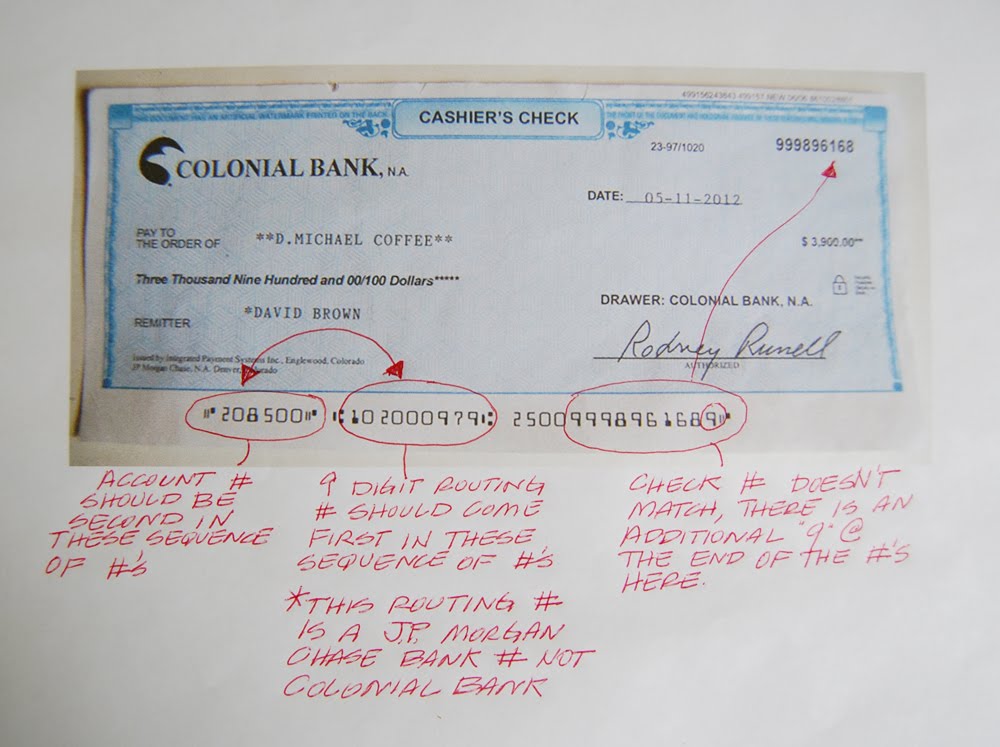 499156243843 499157 NEW 06/06 8810028801
CASHIER'S CHECK
23-97/1020
999896168
COLONIAL BANK, N.A.
DATE: 05-11-2012
PAY TO
THE ORDER OF
**D.MICHAEL COFFEE**
$ 3,900.00**
Three Thousand Nine Hundred and 00/100 Dollars*****
DRAWER: COLONIAL BANK, N.A.
REMITTER
*DAVID BROWN
Rodney Runell
AUTHORIZED
Issued by Integrated Payment Systems Inc., Englewood, Colorado
JP Morgan Chase, N.A. Denver, Colorado
⑈208500⑈ ⑆102000979⑆ 25009998961689⑈
ACCOUNT #
SHOULD BE
SECOND IN
THESE SEQUENCE
OF #'S
9 DIGIT ROUTING
# SHOULD COME
FIRST IN THESE
SEQUENCE OF #'S
*THIS ROUTING #
IS A J.P. MORGAN
CHASE BANK # NOT
COLONIAL BANK
CHECK # DOESN'T
MATCH, THERE IS AN
ADDITIONAL "9" @
THE END OF THE #'S
HERE.